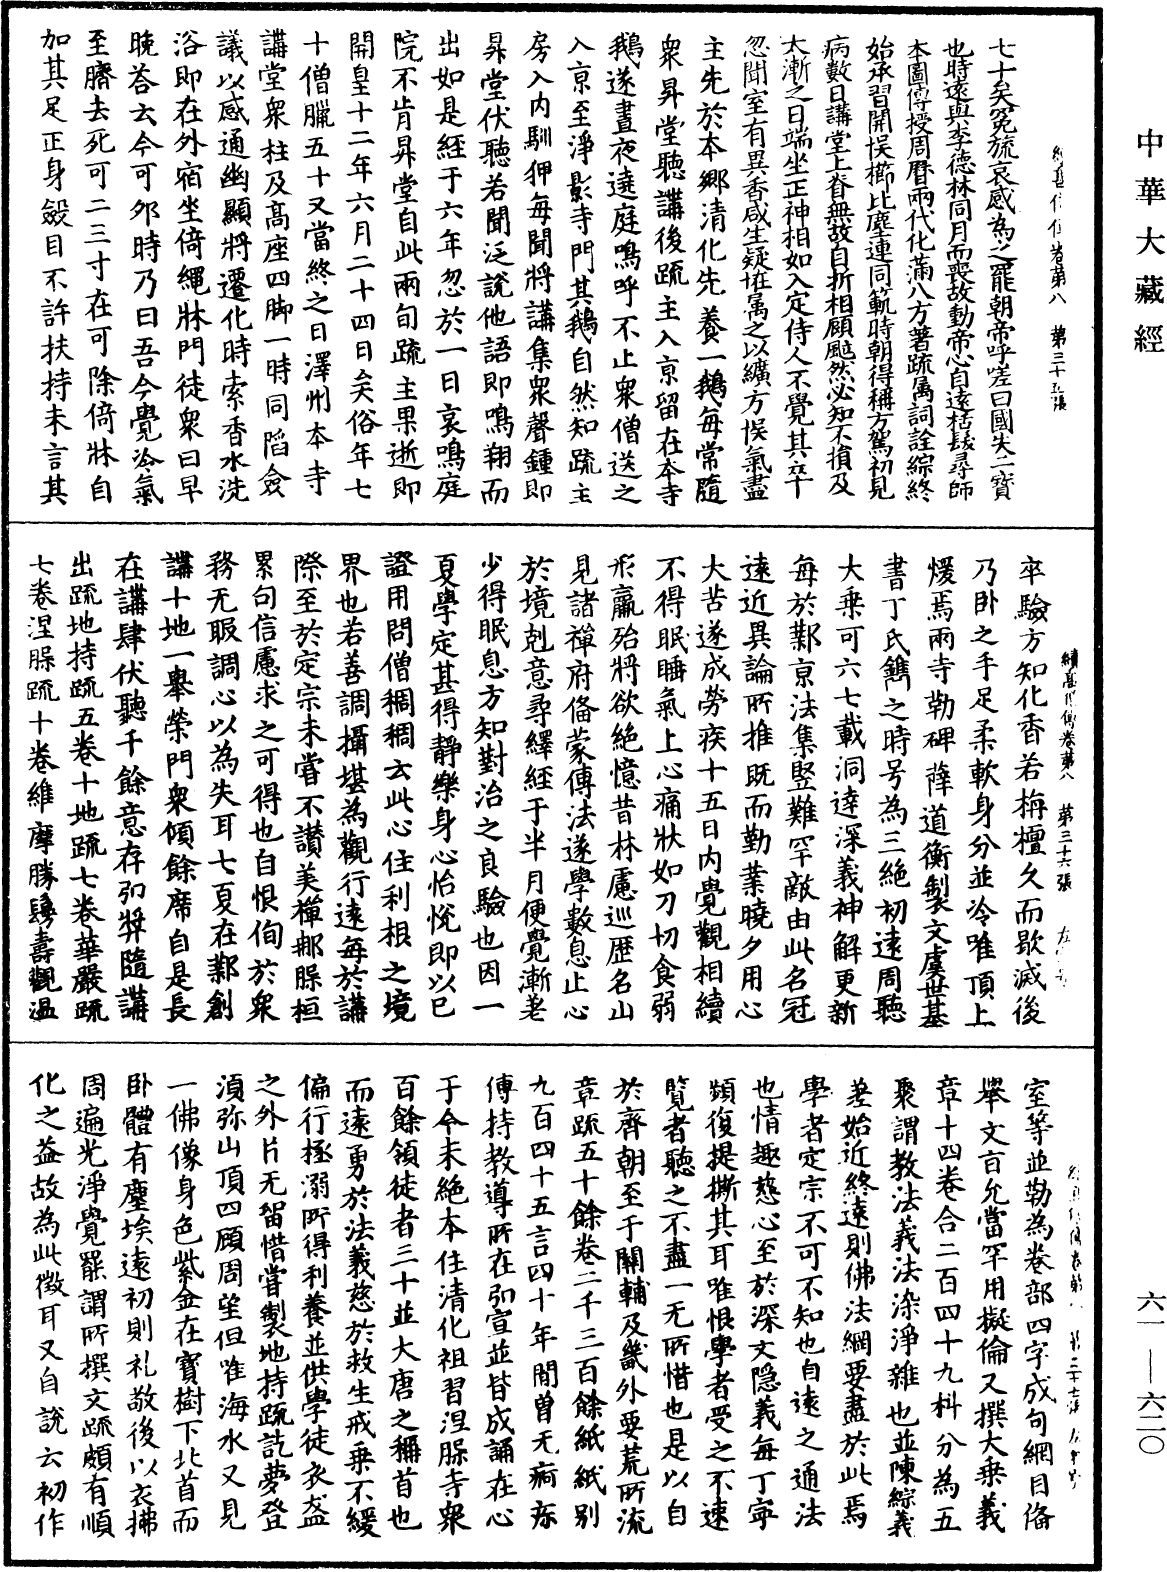 中華大藏經
七十矣冤旒哀感為之罷朝帝呼嗟曰國失二寶
也時遠與李德林同月而喪故動帝心自遠括髮尋師
本圖傳授周曆兩代化滿八方著疏属詞詮綜終
始承習開悮櫛比塵連同範時朝得稱方駕初見
病數日講堂上脊無故自折相顧颰然必知不損及
大漸之日端坐正神相如入定侍人不覺其卒
忽聞室有異香咸生疑恠属之以纊方悮氣盡
主先於本郷清化先養一鵝每常隨
衆昇堂聽講後疏主入京留在本寺
鵝遂晝夜遶庭鳴呼不止衆僧送之
入京至淨影寺門其鵝自然知疏主
房入内馴狎每聞將講集衆聲鍾即
昇堂伏聽若聞泛説他語即鳴翔而
出如是経于六年忽於一日哀鳴庭
院不肯昇堂自此兩旬疏主果逝即
開皇十二年六月二十四日矣俗年七
十僧臘五十又當終之日澤州本寺
講堂衆柱及高座四脚一時同䧟僉
議以感通幽顯將遷化時索香水洗
浴即在外宿坐倚繩牀門徒衆曰早
晚荅云今可夘時乃曰吾今覺冷氣
至臍去死可二三寸在可除倚牀自
加其足正身斂目不許扶持未言其
續高僧傳卷第八　第三十六張
卒驗方知化香若栴檀久而歇滅後
乃卧之手足柔軟身分並冷唯頂上
煖焉兩寺勒碑薛道衡製文虞世基
書丁氏鐫之時号為三絶初遠周聽
大乗可六七載洞達深義神解更新
每於鄴京法集竪難罕敵由此名冠
遠近異論所推既而勤業曉夕用心
大苦遂成勞疾十五日内覺觀相續
不得眠睡氣上心痛狀如刀切食弱
形羸殆將欲絶憶昔林慮巡歷名山
見諸禪府俻蒙傳法遂學數息止心
於境剋意尋繹経于半月便覺漸差
少得眠息方知對治之良驗也因一
夏學定甚得靜樂身心怡恱即以已
證用問僧稠稠云此心住利根之境
界也若善調攝堪為觀行遠每於講
際至於定宗未嘗不讃美禪那䐑桓
累句信慮求之可得也自恨佝於衆
務无暇調心以為失耳七夏在鄴創
講十地一舉榮門衆傾餘席自是長
在講肆伏聽千餘意存弘奬隨講
出疏地持疏五卷十地疏七卷華嚴疏
七卷涅䐑疏十卷維摩勝鬘壽觀温
室等並勒為卷部四字成句網目俻
舉文㫖允當罕用擬倫又撰大乗義
章十四卷合二百四十九科分為五
聚謂教法義法染淨雜也並陳綜義
差始近終遠則佛法綱要盡於此焉
學者定宗不可不知也自遠之通法
也情趣慈心至於深文隱義每丁寧
頻復提撕其耳唯恨學者受之不速
覽者聽之不盡一无所惜也是以自
於齊朝至于關輔及畿外要荒所流
章疏五十餘卷二千三百餘紙紙別
九百四十五言四十年間曾无痾疹
傳持教導所在弘宣並皆成誦在心
于今未絶本住清化祖習涅䐑寺衆
百餘領徒者三十並大唐之稱首也
而遠勇於法義慈於救生戒乗不緩
偏行拯溺所得利養並供學徒衣盔
之外片无留惜嘗製地持疏訖夢登
湏弥山頂四顧周望但唯海水又見
一佛像身色紫金在寳樹下北首而
卧體有塵埃遠初則礼敬後以衣拂
周遍光淨覺罷謂所撰文疏頗有順
化之益故為此徵耳又自説云初作
六一—六二〇